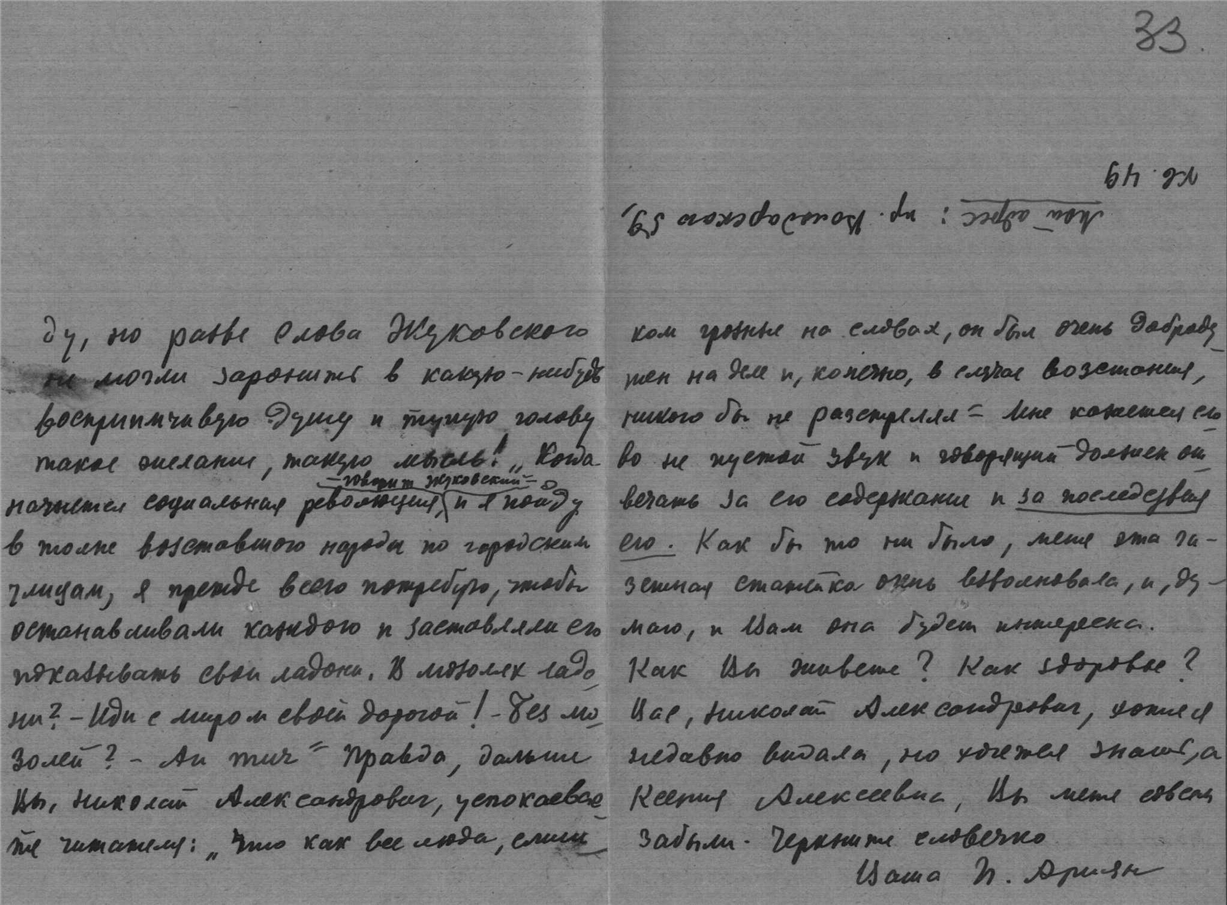 33.
Мой адрес: пр. Володарского 59,
кв. 49
ду, но разве слова Жуковского
не могли заронить в какую-нибудь
восприимчивую душу и тупую голову
такое желание, такую мысль! „Когда
начнется социальная революция, – говорит Жуковский – и я пойду
в толпе возставшего народа по городским
улицам, я прежде всего потребую, чтобы
останавливали каждого и заставляли его
показывать свои ладони. В мозолях ладо-
ни? – Иди с миром своей дорогой! – Без мо-
золей? – Ан
Правда, дальше
Вы, Николай Александрович, успокаевае-
те читателя: „Что как все люди, слиш-
ком грозные на словах, он был очень доброду-
шен на деле и, конечно, в случае возстания,
никого бы не разстрелял" Мне кажется сло-
во не пустой звук и говорящий должен от-
вечать за его содержание и за последствия
его. Как бы то ни было, меня эта га-
зетная статейка очень взволновала, и, ду-
маю, и Вам она будет интересна.
Как Вы живете? Как здоровье?
Вас, Николай Александрович, хотя я
недавно видала, но хочется знать, а
Ксения Алексеевна, Вы меня совсем
забыли. Черкните словечко
Ваша П. Ариян